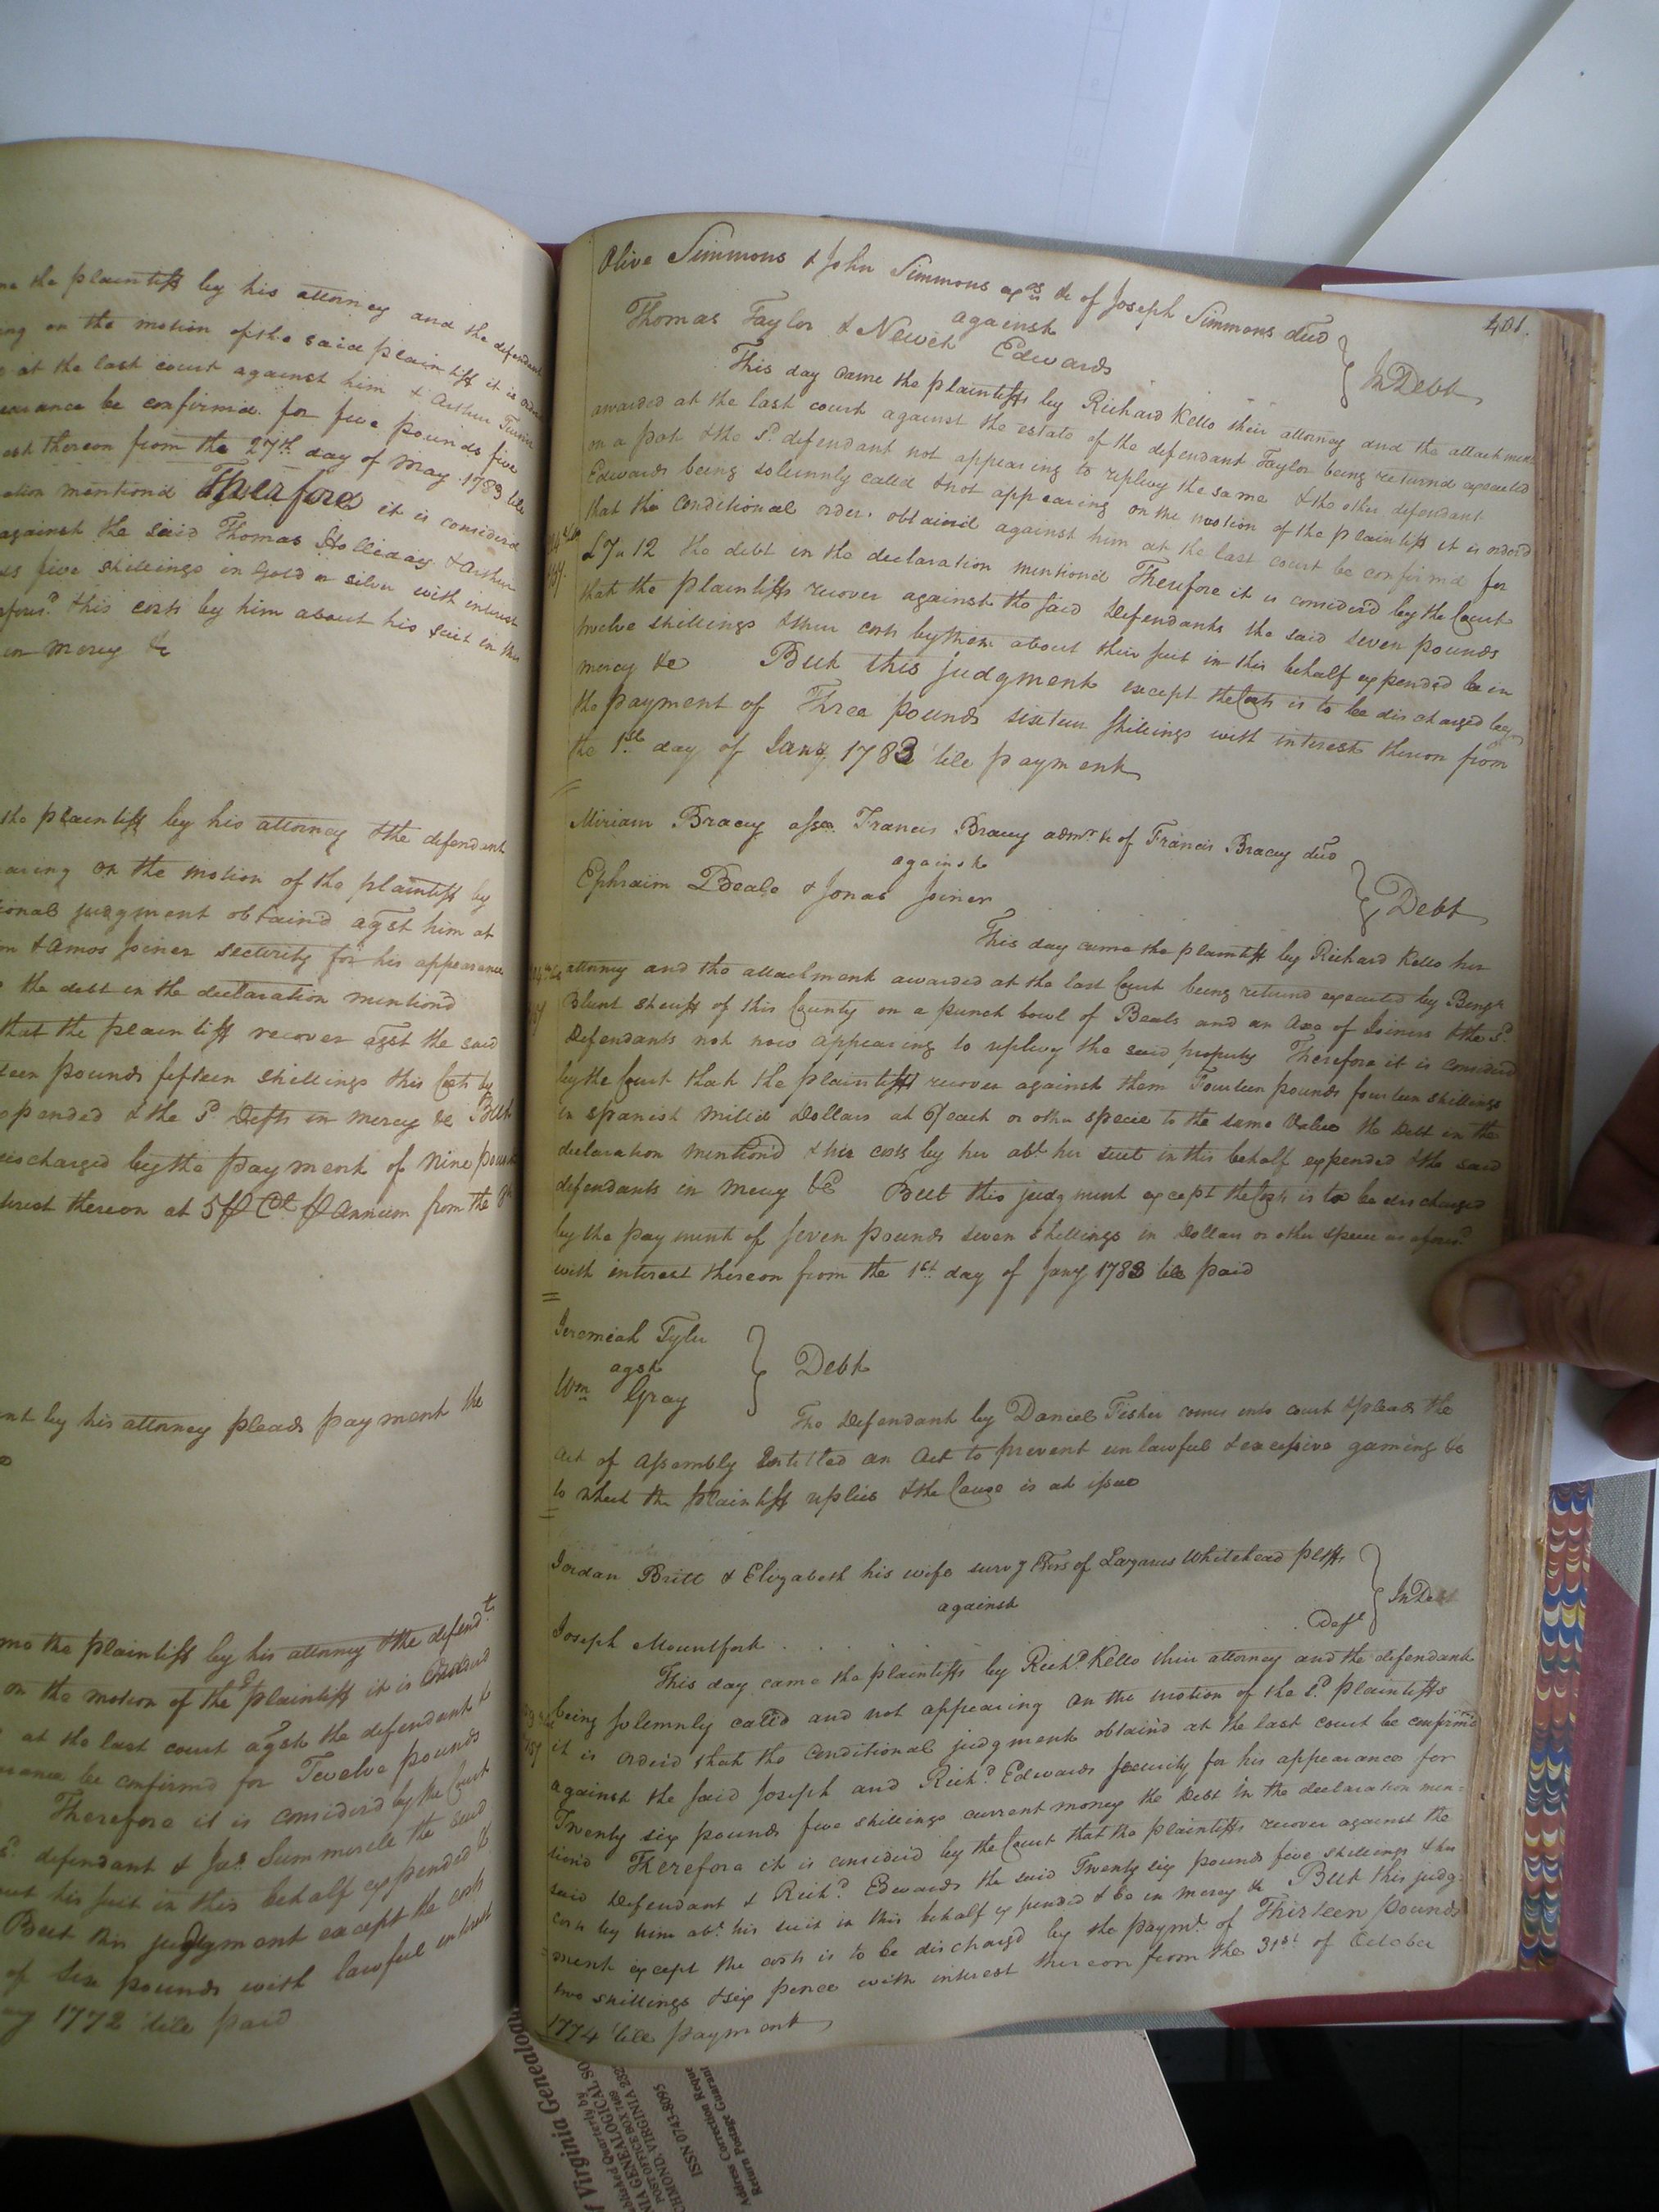 me the plaintiff by his attorney and the defendant
ing on the motion of the said plaintiff it is
at the last court against him & Arthur
earance be confirmd for five pounds five
est thereon from the 27th day of May 1783 till
ation mentiond Therefore it is considerd
against the said Thomas Holliday & Arthur
ds five shillings in Gold or silver with interest
his costs by him about his suit in this
in mercy &c
the plaintiff by his attorney & the defendant
earing on the motion of the plaintiff by
ional judgment obtaind agst him at
on & Amos Joiner security for his appearance
the debt in the declaration mentiond
that the plaintiff recover agst the said
teen pounds fifteen shillings this Costs by
xpended & the sd Defts in mercy &c But
discharged by the payment of nine pounds
terest thereon at 5 ⅌ Ct ⅌ Annum from the
nt by his attorney pleads payment the
me the plaintiff by his attorney & the defendt
on the motion of the sd plaintiff it is Orderd
at the last court agst the defendant &
arance be confirmd for Twelve pounds
Therefore it is considerd by the Court
sd defendant & Jas Summerell the said
out his suit in this behalf expended &
But this judgment except the costs
of six pounds with lawful interest
ry 1772 till paid
401.
Olive Simmons & John Simmons exrs &c of Joseph Simmons decd
against
Thomas Taylor & Newit Edwards
In Debt
This day came the plaintiffs by Richard Kello their attorney and the attachment
awarded at the last court against the estate of the defendant Taylor being returnd executed
on a pot & the sd defendant not appearing to replevy the same & the other defendant
Edwards being solemnly called & not appearing on the motion of the plaintiffs it is orderd
that the conditional order obtaind against him at the last court be confirmd for
£7.. 12 the debt in the declaration mentiond Therefore it is considerd by the Court
that the plaintiffs recover against the said Defendants the said seven pounds
twelve shillings & their costs by them about their suit in this behalf expended be in
mercy &c But this judgment except the Costs is to be discharged by
the payment of Three pounds sixteen shillings with interest thereon from
the 1st day of Jany 1783 till payment
Miriam Bracey asse. Francis Bracey admr &c of Francis Bracey decd
against
Ephraim Beale & Jonas Joiner
Debt
This day came the plaintiff by Richard Kello her
attorney and the attachment awarded at the last Court being returnd executed by Benja
Blunt sheriff of this County on a punch bowl of Beals and an Axe of Joiners & the sd
Defendants not now appearing to replevy the said property Therefore it is considerd
by the Court that the plaintiff recover against them Fourteen pounds fourteen shillings
in spanish milled Dollars at 6/ each or other specie to the same Value the Debt in the
declaration mentiond & her costs by her abt her suit in this behalf expended & the said
defendants in mercy &c But this judgment except the Costs is to be discharged
by the payment of seven pounds seven shillings in Dollars or other specie as aforesd
with interest thereon from the 1st day of Jany 1783 till paid
Jeremiah Tyler
agst
Wm Gray
Debt
The Defendant by Daniel Fisher comes into court & pleads the
act of Assembly Entitled an Act to prevent unlawful & excessive gaming &c
to which the plaintiff replies & the Cause is at issue
Jordan Britt & Elizabeth his wife survg Exrs of Lazarus Whitehead pltffs
against
Joseph Mountfort Deft
In Debt
This day came the plaintiffs by Richd Kello their attorney and the defendant
being solemnly calld and not appearing on the motion of the sd plaintiffs
it is orderd that the conditional judgment obtaind at the last court be confirmd
against the said Joseph and Richd Edwards security for his appearance for
Twenty six pounds five shillings current money the Debt in the declaration men-
tiond Therefore it is considerd by the Court that the plaintiffs recover against the
said Defendant & Richd Edwards the said Twenty six pounds five shillings & his
costs by him abt his suit in this behalf expended & be in mercy &c But this judg-
ment except the costs is to be dischargd by the paymt of Thirteen pounds
two shillings & six pence with interest thereon from the 31st of October
1774 till payment
Virginia Genealog
blished Quarterly by
NIA GENEALOGICAL SO
POST OFFICE BOX 7469
CHMOND, VIRGINIA
ISSN 0743-8095
Address Correction Reque
Return Postage Guaran